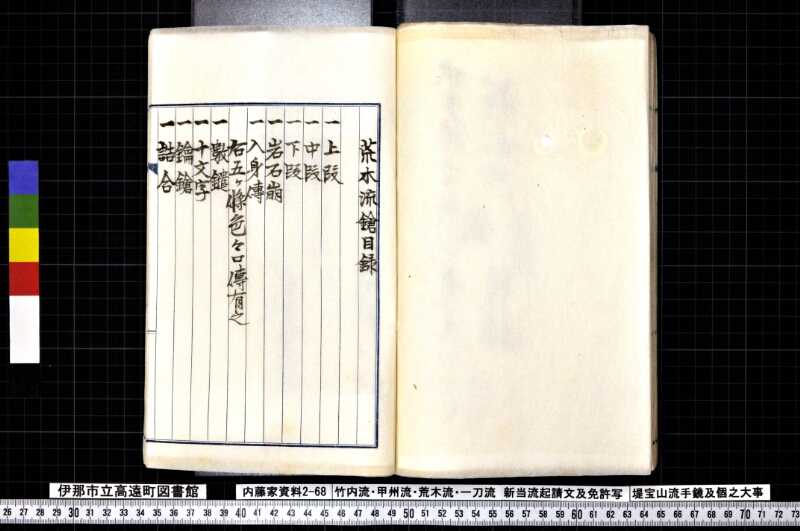 荒木流鎗目録
一上段
一中段
一下段
一岩石崩
一入身傳
右五ヶ條色々口傳有之
一數鑓
一十文字
一鑰鎗
一詰合
伊那市立高遠町図書館
内藤家資料2-68
竹内流・甲州流・荒木流・一刀流 新当流起請文及免許写
堤宝山流手鏡及個之大事
26 27 28 29 30 31 32 33 34 35 36 37 38 39 40 41 42 43 44 45 46 47 48 49 50 51 52 53 54 55 56 57 58 59 60 61 62 63 64 65 66 67 68 69 70 71 72 73